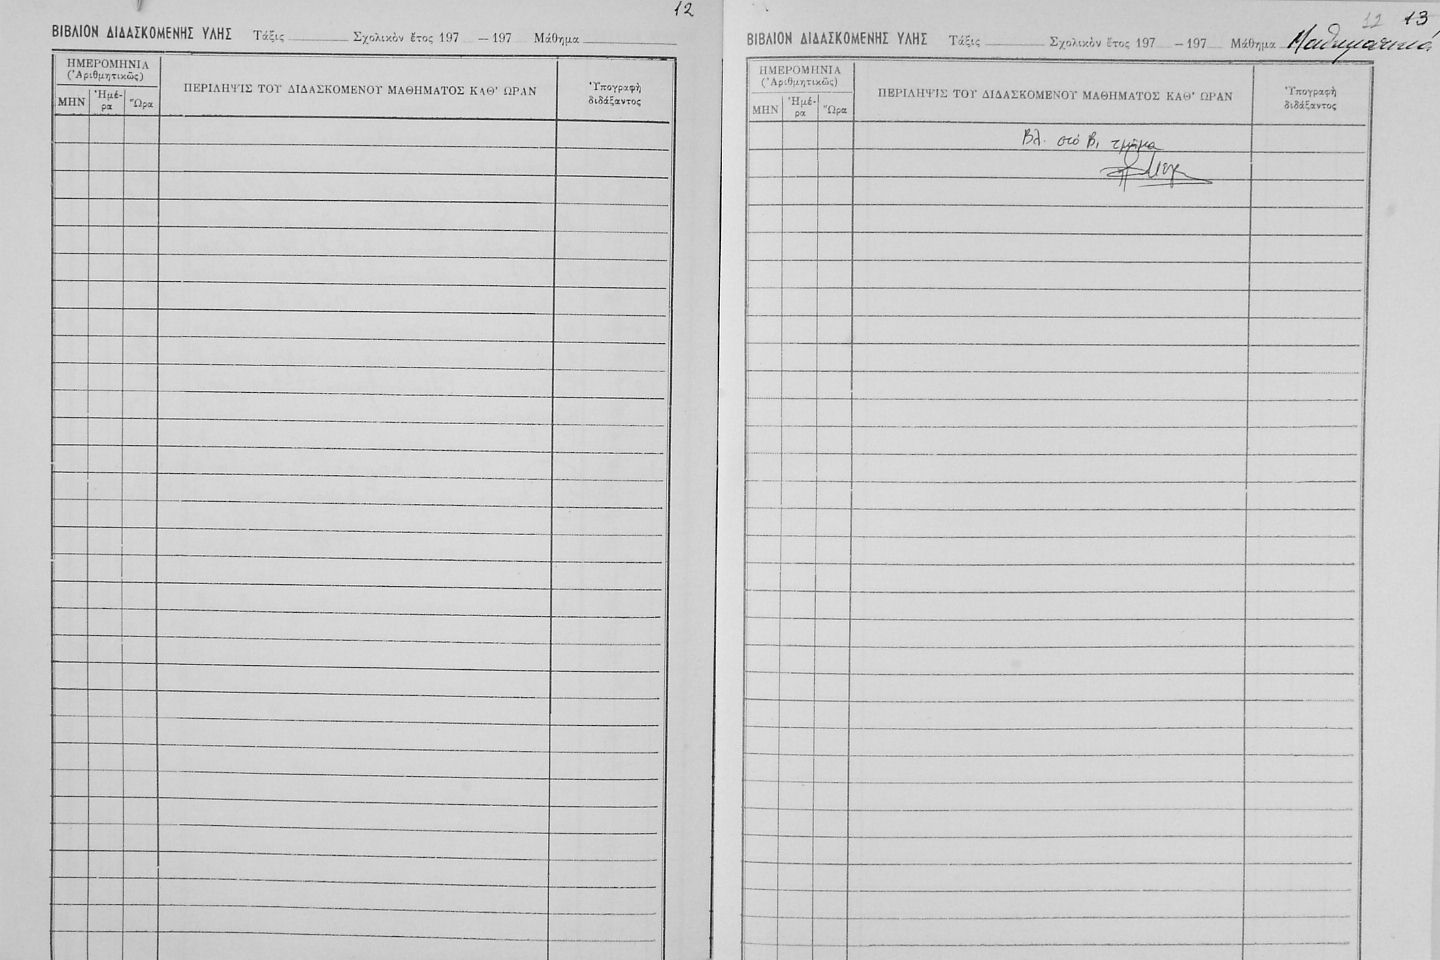 12
ΒΙΒΛΙΟΝ ΔΙΔΑΣΚΟΜΕΝΗΣ ΥΛΗΣ Τάξις Σχολικὸν ἔτος 197 – 197 Μάθημα
ΗΜΕΡΟΜΗΝΙΑ
(Ἀριθμητικῶς)
ΜΗΝ Ἡμέρα Ὥρα
ΠΕΡΙΛΗΨΙΣ ΤΟΥ ΔΙΔΑΣΚΟΜΕΝΟΥ ΜΑΘΗΜΑΤΟΣ ΚΑΘ' ΩΡΑΝ
Ὑπογραφὴ
διδάξαντος
12 13
ΒΙΒΛΙΟΝ ΔΙΔΑΣΚΟΜΕΝΗΣ ΥΛΗΣ Τάξις Σχολικὸν ἔτος 197 – 197 Μάθημα Μαθηματικά
ΗΜΕΡΟΜΗΝΙΑ
(Ἀριθμητικῶς)
ΜΗΝ Ἡμέρα Ὥρα
ΠΕΡΙΛΗΨΙΣ ΤΟΥ ΔΙΔΑΣΚΟΜΕΝΟΥ ΜΑΘΗΜΑΤΟΣ ΚΑΘ' ΩΡΑΝ
Ὑπογραφὴ
διδάξαντος
Βλ. στό Β, τμῆμα